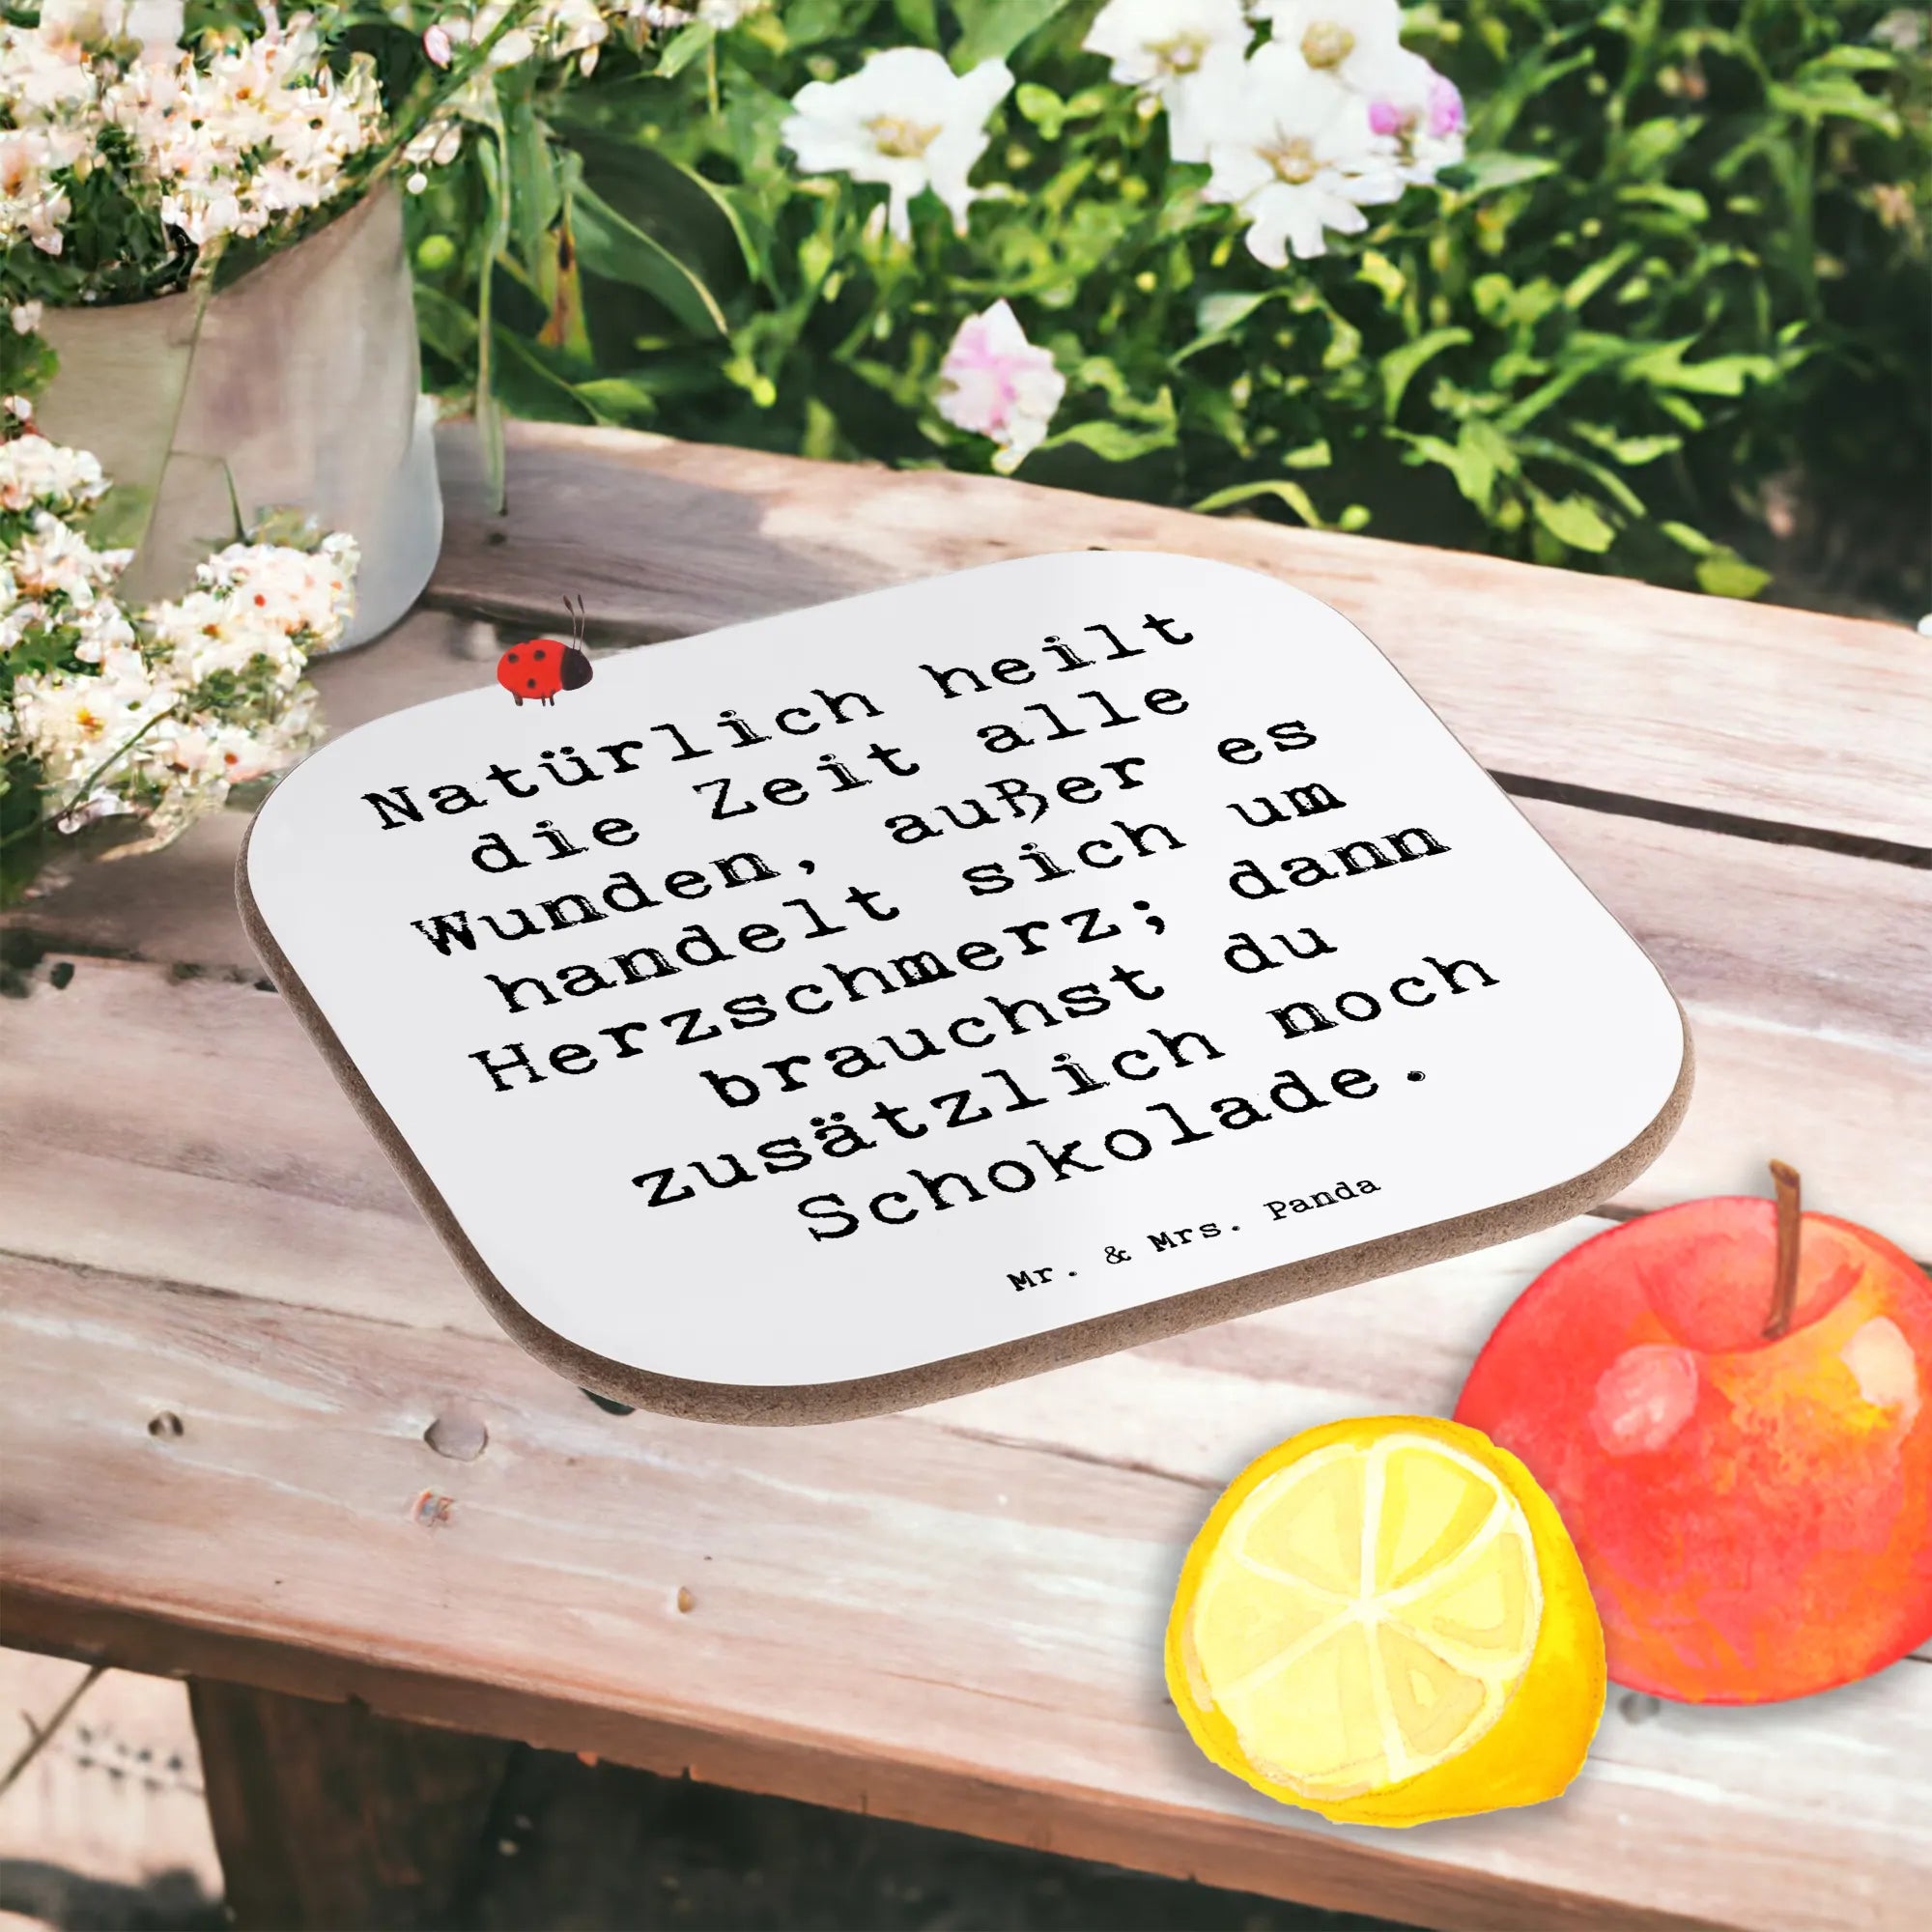 Natürlich heilt
die Zeit alle
Wunden, außer es
handelt sich um
Herzschmerz; dann
brauchst du
zusätzlich noch
Schokolade.
Mr. & Mrs. Panda